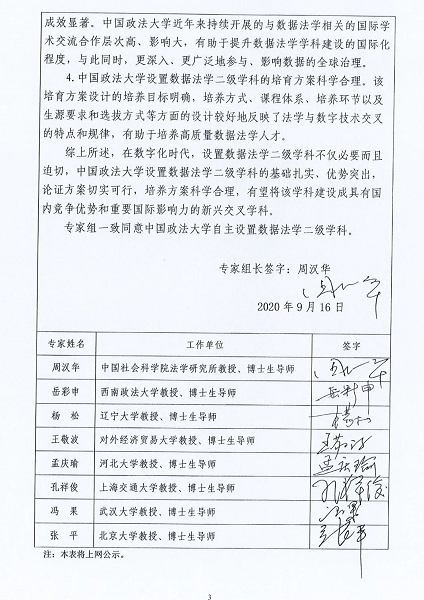 成效显著。中国政法大学近年来持续开展的与数据法学相关的国际学
术交流合作层次高、影响大，有助于提升数据法学学科建设的国际化
程度，与此同时，更深入、更广泛地参与、影响数据的全球治理。
4.中国政法大学设置数据法学二级学科的培育方案科学合理。该
培育方案设计的培养目标明确，培养方式、课程体系、培养环节以及
生源要求和选拔方式等方面的设计较好地反映了法学与数字技术交叉
的特点和规律，有助于培养高质量数据法学人才。
综上所述，在数字化时代，设置数据法学二级学科不仅必要而且
迫切，中国政法大学设置数据法学二级学科的基础扎实、优势突出，
论证方案切实可行，培养方案科学合理，有望将该学科建设成具有国
内竞争优势和重要国际影响力的新兴交叉学科。
专家组一致同意中国政法大学自主设置数据法学二级学科。
专家组长签字：周汉华
2020年9月16日
专家姓名 工作单位 签字
周汉华 中国社会科学院法学研究所教授、博士生导师
岳彩申 西南政法大学教授、博士生导师 岳彩申
杨 松 辽宁大学教授、博士生导师 杨松
王敬波 对外经济贸易大学教授、博士生导师
孟庆瑜 河北大学教授、博士生导师 孟庆瑜
孔祥俊 上海交通大学教授、博士生导师 孔祥俊
冯 果 武汉大学教授、博士生导师 冯果
张 平 北京大学教授、博士生导师 张平
注：本表将上网公示。
3